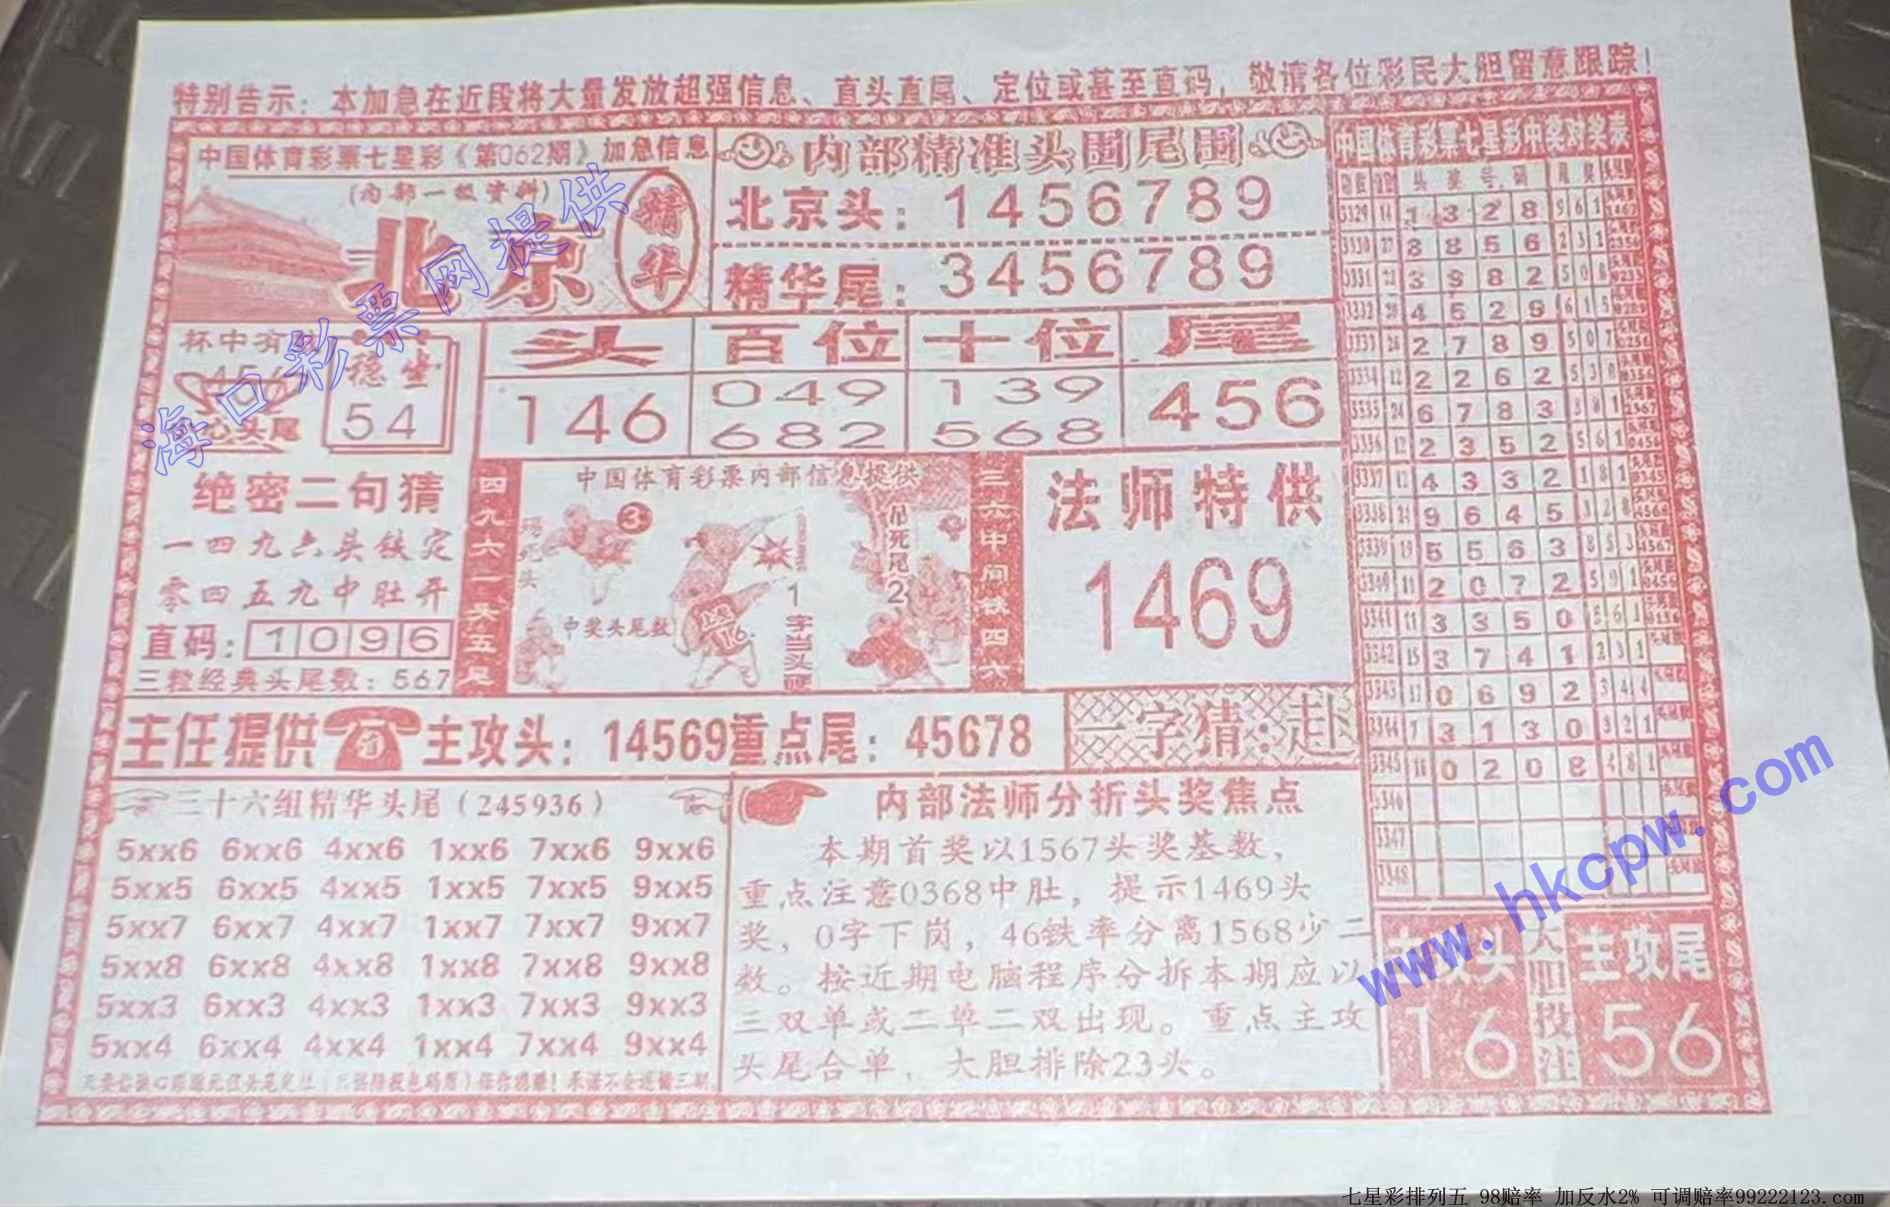 特别告示：本加急在近段将大量发放超强信息、直头直尾、定位或甚至直码，敬请各位彩民大胆留意跟踪！
中国体育彩票七星彩《第062期》加急信息
(内部一级资料)
北京
精华
内部精准头围尾围
北京头：1456789
精华尾：3456789
杯中有
心头尾
稳坐
54
头 百位 十位 尾
146
049
682
139
568
456
绝密二句猜
一四九六头铁定
零四五九中肚开
直码：1096
三粒经典头尾数：567
四九六一头五尾
中国体育彩票内部信息提供
3
吊死尾2
中奖头尾数
16
1字当头硬
三六中间铁四六
法师特供
1469
主任提供 主攻头：14569重点尾：45678
一字猜：赴
三十六组精华头尾（245936）
5xx6 6xx6 4xx6 1xx6 7xx6 9xx6
5xx5 6xx5 4xx5 1xx5 7xx5 9xx5
5xx7 6xx7 4xx7 1xx7 7xx7 9xx7
5xx8 6xx8 4xx8 1xx8 7xx8 9xx8
5xx3 6xx3 4xx3 1xx3 7xx3 9xx3
5xx4 6xx4 4xx4 1xx4 7xx4 9xx4
内部法师分折头奖焦点
本期首奖以1567头奖基数，
重点注意0368中肚，提示1469头
奖，0字下岗，46铁率分离1568少二
数。按近期电脑程序分拆本期应以
三双单或二单二双出现。重点主攻
头尾合单，大胆排除23头。
中国体育彩票七星彩中奖对奖表
头奖号码 尾奖
3329 14 1 3 2 8 5 6 1
3330 27 8 8 5 6 2 3 1
3331 22 3 9 8 2 5 0 8
3332 20 4 5 2 9 6 1 5
3333 26 2 7 8 9 5 0 7
3334 12 2 2 6 2 5 3 0
3335 24 6 7 8 3 3 8 1
3336 12 2 3 5 2 5 6 1
3337 12 4 3 3 2 1 8 1
3338 24 9 6 4 5 3 2 8
3339 19 5 5 6 3 8 5 3
3340 11 2 0 7 2 5 9 1
3341 11 3 3 5 0 8 6 1
3342 15 3 7 4 1 2 3 1
3343 17 0 6 9 2 3 4 4
3344 7 3 1 3 0 3 2 1
3345 10 0 2 0 8
3346
3347
3348
主攻头
16
大胆投注
主攻尾
56
海口彩票网提供
www.hkcpw.com
七星彩排列五 98赔率 加反水2% 可调赔率99222123.com